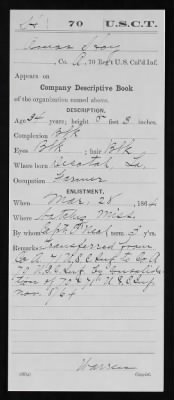 H 70 U.S.C.T.
Amos Hoy
Co. A, 70 Reg't U.S. Col'd Inf.
Appears on
Company Descriptive Book
of the organization named above.
DESCRIPTION.
Age 34 years; height 5 feet 3 inches.
Complexion Blk
Eyes Blk; hair Blk
Where born La.
Occupation Farmer
ENLISTMENT.
When Mar. 28, 1864
Where Natchez Miss.
By whom Neal term 3 y'rs.
Remarks: Transferred from
Co A 71 U.S.C. Inf to Co A
70 U.S.C. Inf. by Consolida
tion of 70 & 71 U.S.C. Inf
Nov. 8/64
Warren
Copyist.